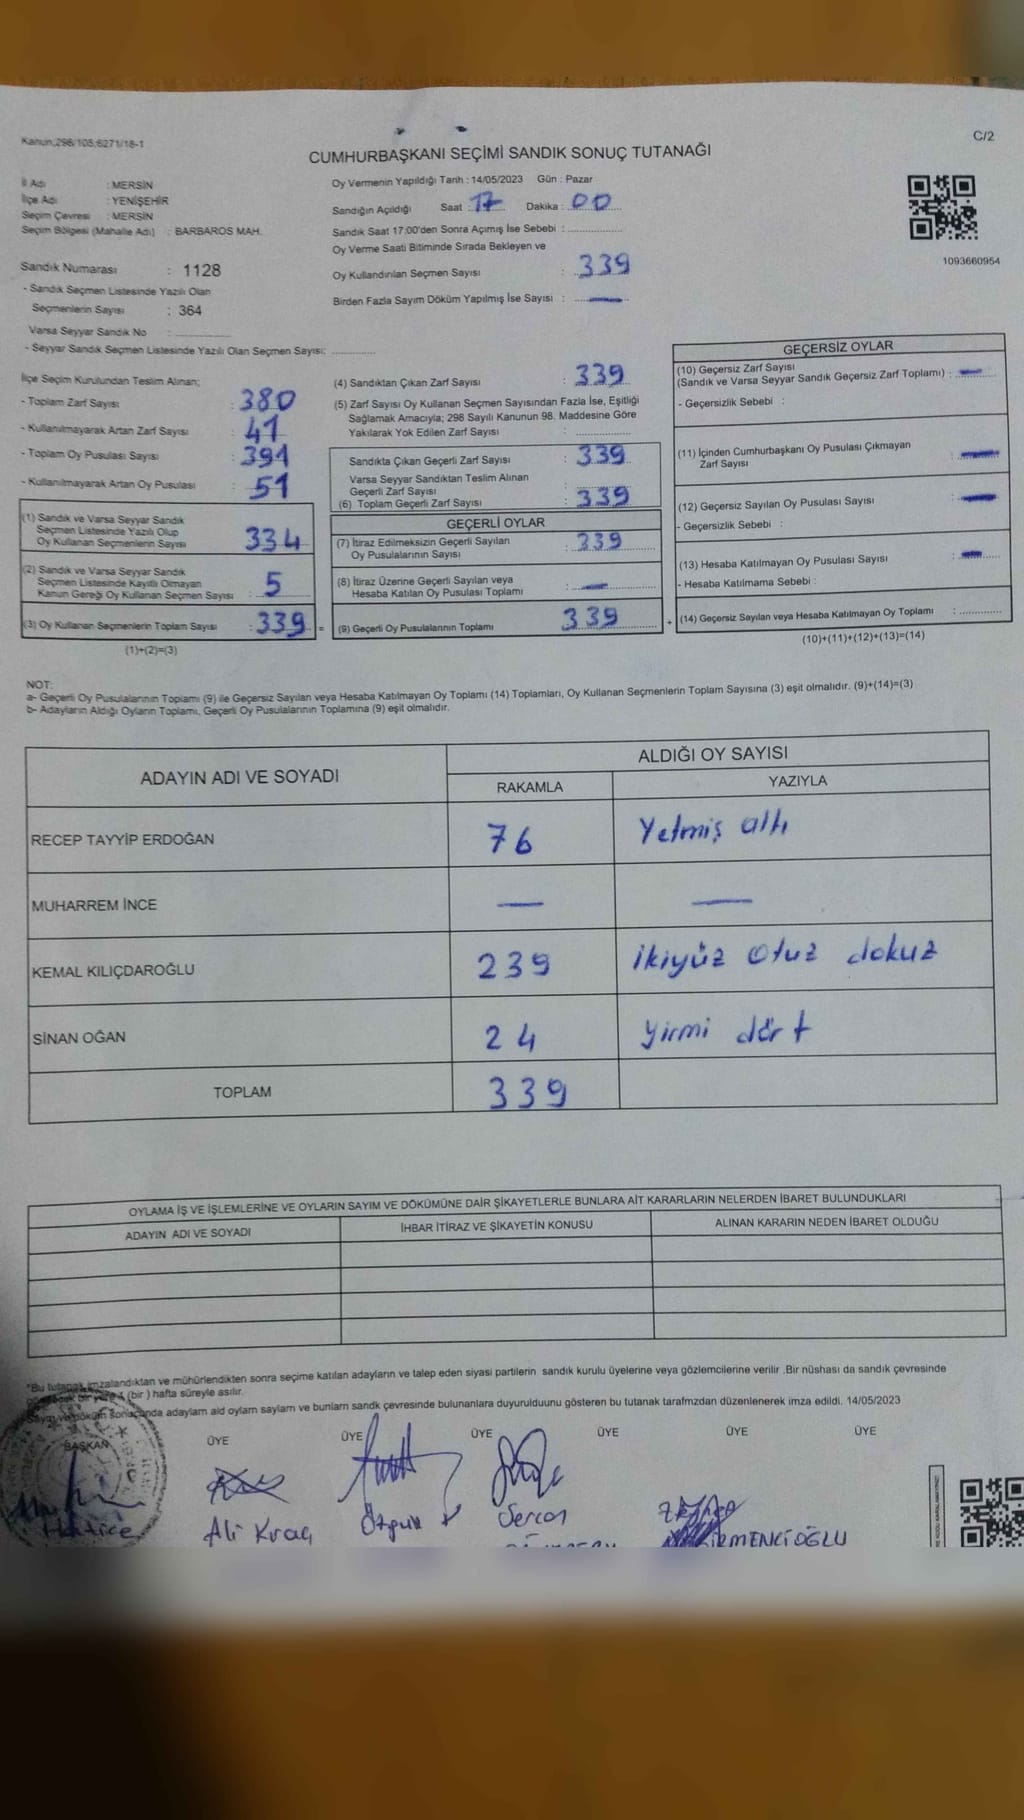 Kanun:298/105;6271/18-1
C/2
CUMHURBAŞKANI SEÇİMİ SANDIK SONUÇ TUTANAĞI
İl Adı : MERSİN
İlçe Adı : YENİŞEHİR
Seçim Çevresi : MERSİN
Seçim Bölgesi (Mahalle Adı) : BARBAROS MAH.
Sandık Numarası : 1128
- Sandık Seçmen Listesinde Yazılı Olan
Seçmenlerin Sayısı : 364
Varsa Seyyar Sandık No : ............
- Seyyar Sandık Seçmen Listesinde Yazılı Olan Seçmen Sayısı: ............
Oy Vermenin Yapıldığı Tarih : 14/05/2023 Gün : Pazar
Sandığın Açıldığı Saat : 17 Dakika : 00
Sandık Saat 17:00'den Sonra Açımış İse Sebebi : ............
Oy Verme Saati Bitiminde Sırada Bekleyen ve
Oy Kullandırılan Seçmen Sayısı : 339
Birden Fazla Sayım Döküm Yapılmış İse Sayısı : —
1093660954
İlçe Seçim Kurulundan Teslim Alınan;
- Toplam Zarf Sayısı : 380
- Kullanılmayarak Artan Zarf Sayısı : 41
- Toplam Oy Pusulası Sayısı : 391
- Kullanılmayarak Artan Oy Pusulası : 51
(1) Sandık ve Varsa Seyyar Sandık
Seçmen Listesinde Yazılı Olup
Oy Kullanan Seçmenlerin Sayısı : 334
(2) Sandık ve Varsa Seyyar Sandık
Seçmen Listesinde Kayıtlı Olmayan
Kanun Gereği Oy Kullanan Seçmen Sayısı : 5
(3) Oy Kullanan Seçmenlerin Toplam Sayısı : 339 =
(1)+(2)=(3)
(4) Sandıktan Çıkan Zarf Sayısı : 339
(5) Zarf Sayısı Oy Kullanan Seçmen Sayısından Fazla İse, Eşitliği
Sağlamak Amacıyla; 298 Sayılı Kanunun 98. Maddesine Göre
Yakılarak Yok Edilen Zarf Sayısı : ............
Sandıkta Çıkan Geçerli Zarf Sayısı : 339
Varsa Seyyar Sandıktan Teslim Alınan
Geçerli Zarf Sayısı : ............
(6) Toplam Geçerli Zarf Sayısı : 339
GEÇERLİ OYLAR
(7) İtiraz Edilmeksizin Geçerli Sayılan
Oy Pusulalarının Sayısı : 339
(8) İtiraz Üzerine Geçerli Sayılan veya
Hesaba Katılan Oy Pusulası Toplamı : —
(9) Geçerli Oy Pusulalarının Toplamı : 339 +
GEÇERSİZ OYLAR
(10) Geçersiz Zarf Sayısı
(Sandık ve Varsa Seyyar Sandık Geçersiz Zarf Toplamı) : —
- Geçersizlik Sebebi :
(11) İçinden Cumhurbaşkanı Oy Pusulası Çıkmayan
Zarf Sayısı : —
(12) Geçersiz Sayılan Oy Pusulası Sayısı : —
- Geçersizlik Sebebi :
(13) Hesaba Katılmayan Oy Pusulası Sayısı : —
- Hesaba Katılmama Sebebi :
(14) Geçersiz Sayılan veya Hesaba Katılmayan Oy Toplamı : ............
(10)+(11)+(12)+(13)=(14)
NOT:
a- Geçerli Oy Pusulalarının Toplamı (9) ile Geçersiz Sayılan veya Hesaba Katılmayan Oy Toplamı (14) Toplamları, Oy Kullanan Seçmenlerin Toplam Sayısına (3) eşit olmalıdır. (9)+(14)=(3)
b- Adayların Aldığı Oyların Toplamı, Geçerli Oy Pusulalarının Toplamına (9) eşit olmalıdır.
ADAYIN ADI VE SOYADI
ALDIĞI OY SAYISI
RAKAMLA YAZIYLA
RECEP TAYYİP ERDOĞAN 76 Yetmiş altı
MUHARREM İNCE — —
KEMAL KILIÇDAROĞLU 239 ikiyüz otuz dokuz
SİNAN OĞAN 24 yirmi dört
TOPLAM 339
OYLAMA İŞ VE İŞLEMLERİNE VE OYLARIN SAYIM VE DÖKÜMÜNE DAİR ŞİKAYETLERLE BUNLARA AİT KARARLARIN NELERDEN İBARET BULUNDUKLARI
ADAYIN ADI VE SOYADI İHBAR İTİRAZ VE ŞİKAYETİN KONUSU ALINAN KARARIN NEDEN İBARET OLDUĞU
*Bu tutanak imzalandıktan ve mühürlendikten sonra seçime katılan adayların ve talep eden siyasi partilerin sandık kurulu üyelerine veya gözlemcilerine verilir .Bir nüshası da sandık çevresinde
(bir ) hafta süreyle asılır.
Sayım ve döküm sonucunda adayların ald oylarn saylarn ve bunlarn sandk çevresinde bulunanlara duyurulduunu gösteren bu tutanak tarafmzdan düzenlenerek imza edildi. 14/05/2023
BAŞKAN ÜYE ÜYE ÜYE ÜYE ÜYE ÜYE
Hatice Ali Kıraç Sercan